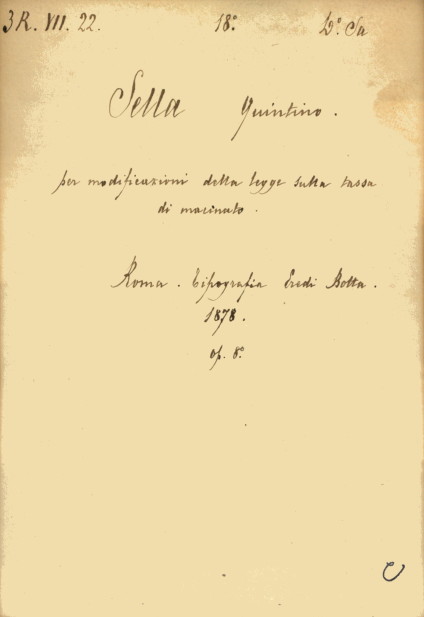 3 R. VII. 22. 18.° D.° Sa
Sella Quintino.
per modificazioni della legge sulla tassa
di macinato.
Roma. Tipografia Eredi Botta.
1878.
op. 8.°